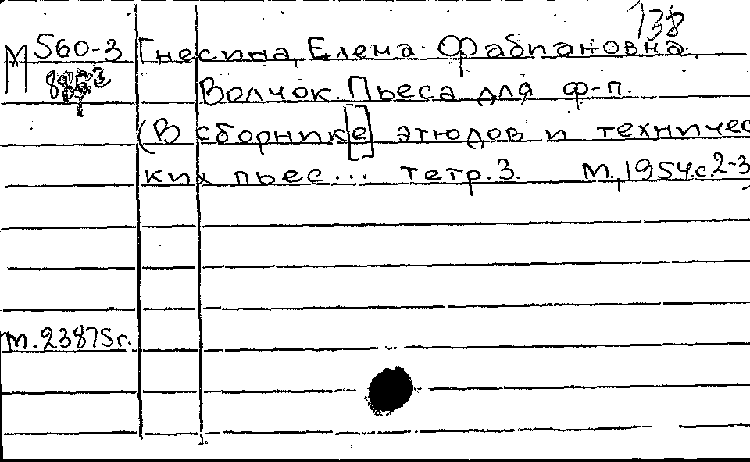 138
М 560-3 Гнесина, Елена Фабиановна.
Волчок. Пьеса для ф-п.
(В сборник[е] этюдов и техничес
ких пьес... тетр. 3. М., 1954 с 2-3
м. 23875 г.